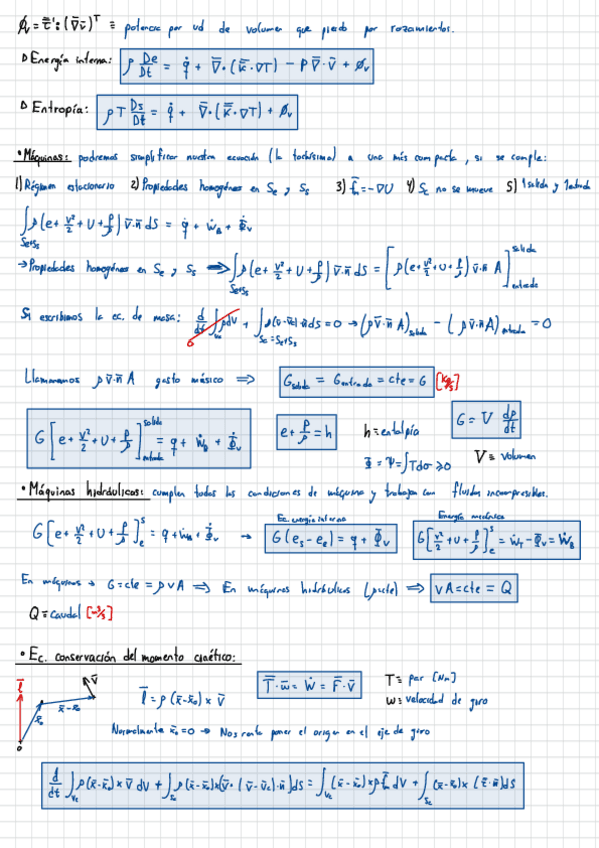 ϕᵥ = τ̿' : (∇̄v̄)ᵀ ≡ potencia por ud de volumen que pierdo por rozamientos.
▷ Energía interna: ρ De/Dt = q̇ + ∇̄·(k̿·∇T) − P ∇̄·v̄ + ϕᵥ
▷ Entropía: ρT Ds/Dt = q̇ + ∇̄·(k̿·∇T) + ϕᵥ
• Máquinas: podremos simplificar nuestra ecuación (la tochísima) a una más compacta, si se cumple:
1) Régimen estacionario 2) Propiedades homogéneas en Se y Ss 3) f̄m = −∇U 4) Sc no se mueve 5) 1 salida y 1 entrada
∫Se+Ss ρ(e + v²/2 + U + P/ρ) v̄·n̄ dS = q̇ + ẆB + Φ̇ᵥ
→ Propiedades homogéneas en Se y Ss ⟹ ∫Se+Ss ρ(e + v²/2 + U + P/ρ) v̄·n̄ dS = [ρ(e + v²/2 + U + P/ρ) v̄·n̄ A] salida entrada
Si escribimos la ec. de masa: d/dt ∫ ρdV + ∫Sc=Se+Ss ρ(v̄−v̄c)·n̄dS = 0 → (ρv̄·n̄ A)salida − (ρv̄·n̄ A)entrada = 0
0
Llamaremos ρ v̄·n̄ A gasto másico ⟹ Gsalida = Gentrada = cte = G [kg/s]
G [e + v²/2 + U + P/ρ] salida entrada = q + ẆB + Φ̇ᵥ e + P/ρ = h h ≡ entalpía G = V dρ/dt
Φ̇ = Ψ = ∫Tdσ ≥ 0 V ≡ Volumen
• Máquinas hidráulicas: cumplen todas las condiciones de máquina y trabajan con fluidos incompresibles.
Ec. energía interna Energía mecánica
G [e + v²/2 + U + P/ρ] s e = q + ẇB + Φ̇ᵥ → G(es − ee) = q + Φ̇ᵥ G[v²/2 + U + P/ρ] s e = ẆT − Φ̇ᵥ = ẆB
En máquinas → G = cte = ρ v A ⟹ En máquinas hidráulicas (ρ cte) ⟹ vA = cte = Q
Q ≡ caudal [m³/s]
• Ec. conservación del momento cinético:
l̄ x̄₀ x̄−x̄₀ v̄ 0
l̄ = ρ(x̄−x̄₀) × v̄ T̄·w̄ = Ẇ = F̄·v̄ T ≡ par [Nm]
w ≡ velocidad de giro
Normalmente x̄₀ = 0 → Nos renta poner el origen en el eje de giro
d/dt ∫Vc ρ(x̄−x̄₀) × v̄ dV + ∫Sc ρ(x̄−x̄₀)×(v̄·(v̄−v̄c)·n̄)dS = ∫Vc (x̄−x̄₀)×ρf̄m dV + ∫Sc (x̄−x̄₀)×(τ̿·n̄)dS